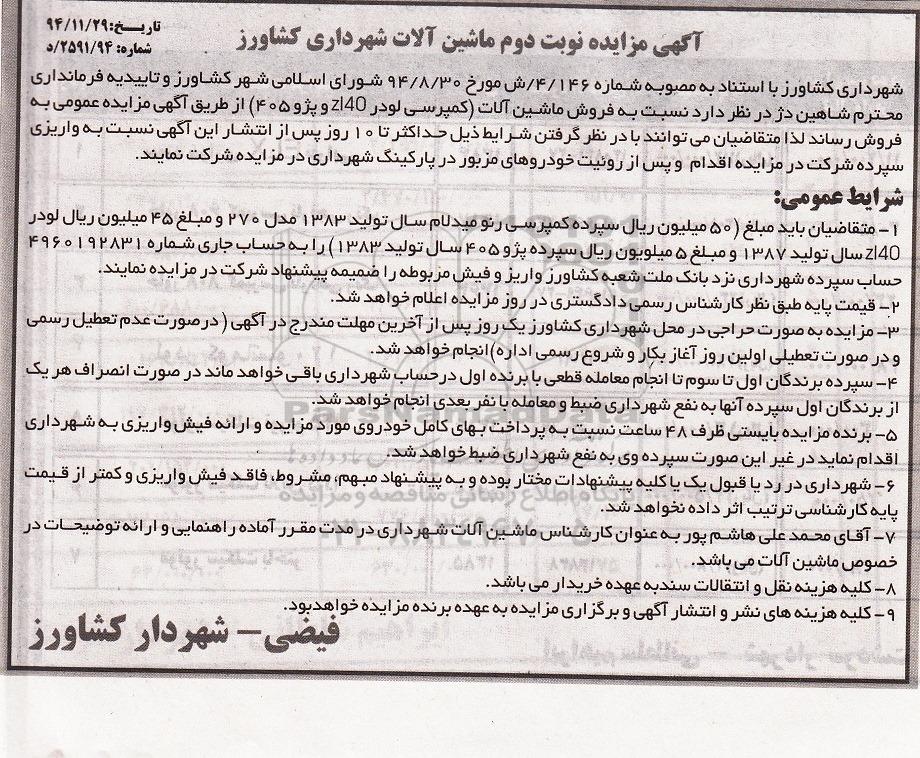 تاریخ:۹۴/۱۱/۲۹
شماره: ۲۵۹۱/۹۴/د
آگهی مزایده نوبت دوم ماشین آلات شهرداری کشاورز
شهرداری کشاورز با استناد به مصوبه شماره ۴/۱۴۶/ش مورخ ۹۴/۸/۳۰ شورای اسلامی شهر کشاورز و تاییدیه فرمانداری
محترم شاهین دژ در نظر دارد نسبت به فروش ماشین آلات (کمپرسی لودر zl40 و پژو ۴۰۵) از طریق آگهی مزایده عمومی به
فروش رساند لذا متقاضیان می توانند با در نظر گرفتن شرایط ذیل حداکثر تا ۱۰ روز پس از انتشار این آگهی نسبت به واریزی
سپرده شرکت در مزایده اقدام و پس از روئیت خودروهای مزبور در پارکینگ شهرداری در مزایده شرکت نمایند.
شرایط عمومی:
۱- متقاضیان باید مبلغ (۵۰ میلیون ریال سپرده کمپرسی رنو میدلام سال تولید ۱۳۸۳ مدل ۲۷۰ و مبلغ ۴۵ میلیون ریال لودر
zl40 سال تولید ۱۳۸۷ و مبلغ ۵ میلویون ریال سپرده پژو ۴۰۵ سال تولید ۱۳۸۳) را به حساب جاری شماره ۴۹۶۰۱۹۲۸۳۱
حساب سپرده شهرداری نزد بانک ملت شعبه کشاورز واریز و فیش مربوطه را ضمیمه پیشنهاد شرکت در مزایده نمایند.
۲- قیمت پایه طبق نظر کارشناس رسمی دادگستری در روز مزایده اعلام خواهد شد.
۳- مزایده به صورت حراجی در محل شهرداری کشاورز یک روز پس از آخرین مهلت مندرج در آگهی (درصورت عدم تعطیل رسمی
و در صورت تعطیلی اولین روز آغاز بکار و شروع رسمی اداره)انجام خواهد شد.
۴- سپرده برندگان اول تا سوم تا انجام معامله قطعی با برنده اول درحساب شهرداری باقی خواهد ماند در صورت انصراف هر یک
از برندگان اول سپرده آنها به نفع شهرداری ضبط و معامله با نفر بعدی انجام خواهد شد.
۵- برنده مزایده بایستی ظرف ۴۸ ساعت نسبت به پرداخت بهای کامل خودروی مورد مزایده و ارائه فیش واریزی به شهرداری
اقدام نماید در غیر این صورت سپرده وی به نفع شهرداری ضبط خواهد شد.
۶- شهرداری در رد یا قبول یک یا کلیه پیشنهادات مختار بوده و به پیشنهاد مبهم، مشروط، فاقد فیش واریزی و کمتر از قیمت
پایه کارشناسی ترتیب اثر داده نخواهد شد.
۷- آقای محمد علی هاشم پور به عنوان کارشناس ماشین آلات شهرداری در مدت مقرر آماده راهنمایی و ارائه توضیحات در
خصوص ماشین آلات می باشد.
۸- کلیه هزینه نقل و انتقالات سند به عهده خریدار می باشد.
۹- کلیه هزینه های نشر و انتشار آگهی و برگزاری مزایده به عهده برنده مزایده خواهدبود.
فیضی- شهردار کشاورز